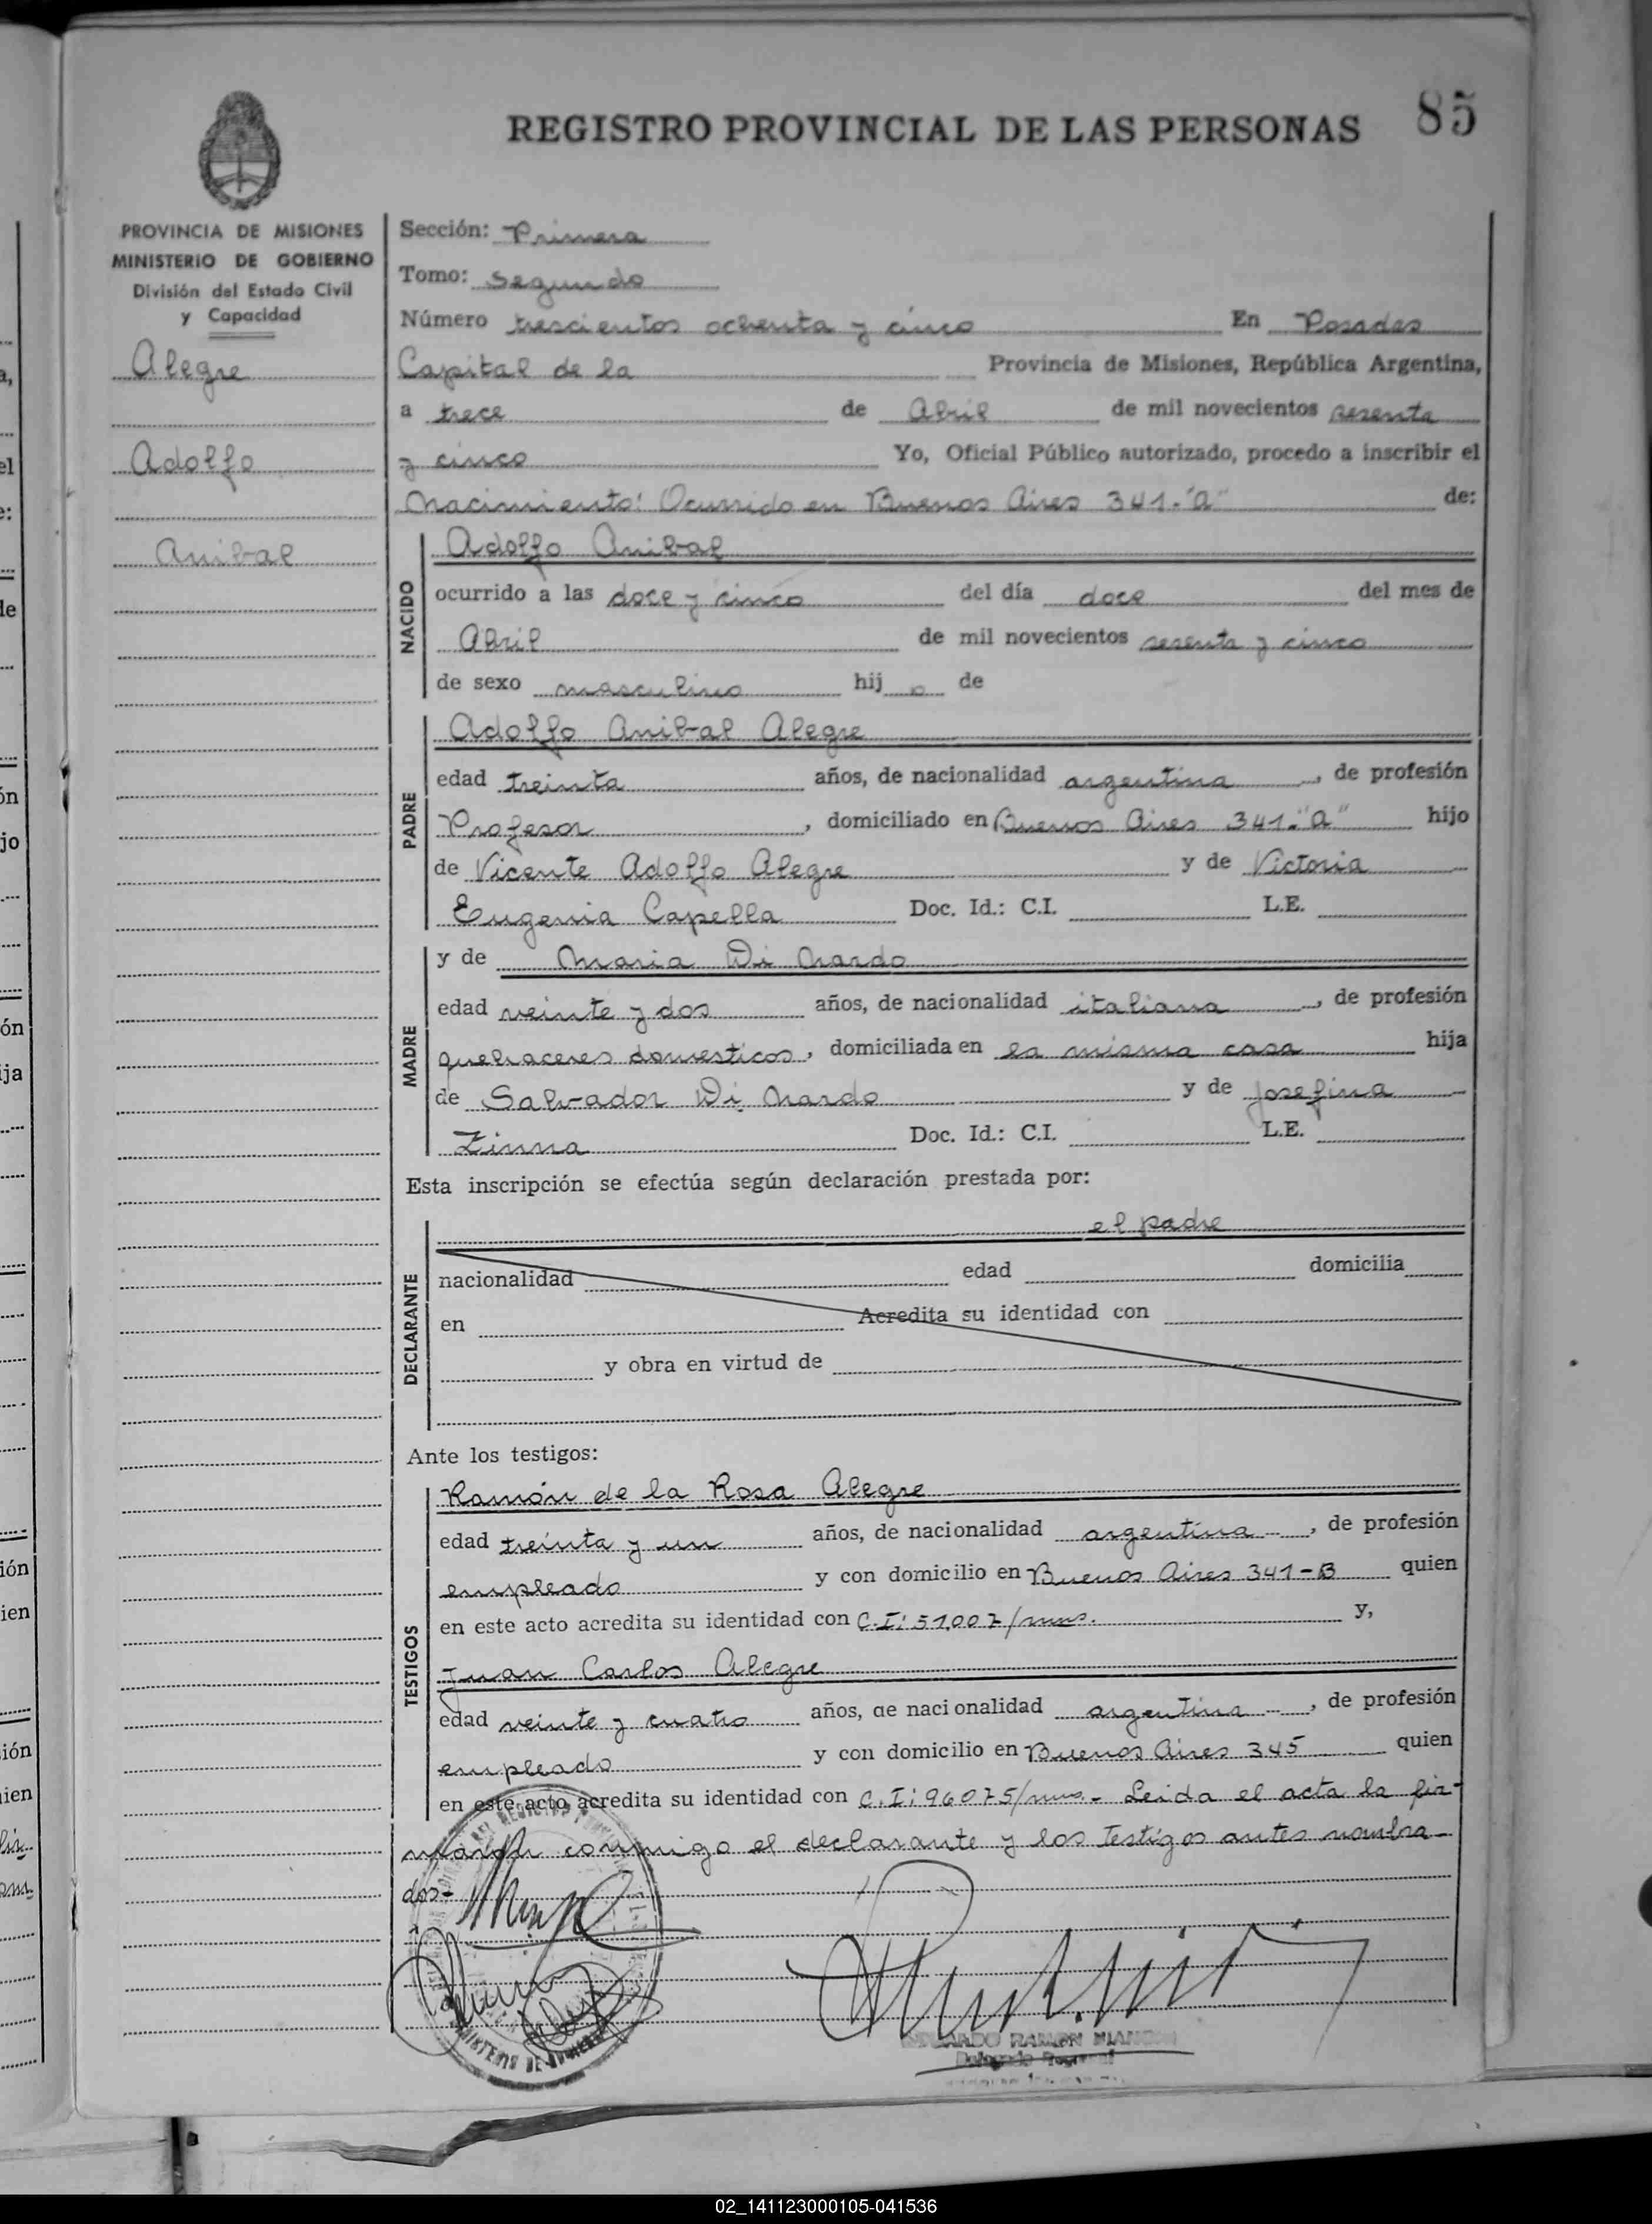 REGISTRO PROVINCIAL DE LAS PERSONAS 85
PROVINCIA DE MISIONES
MINISTERIO DE GOBIERNO
División del Estado Civil
y Capacidad
Alegre
Adolfo
Anibal
Sección: Primera
Tomo: Segundo
Número trescientos ochenta y cinco En Posadas
Capital de la Provincia de Misiones, República Argentina,
a trece de Abril de mil novecientos sesenta
y cinco Yo, Oficial Público autorizado, procedo a inscribir el
Nacimiento: Ocurrido en Buenos Aires 341-"A" de:
NACIDO
Adolfo Anibal
ocurrido a las doce y cinco del día doce del mes de
Abril de mil novecientos sesenta y cinco
de sexo masculino hij o de
PADRE
Adolfo Anibal Alegre
edad treinta años, de nacionalidad argentina, de profesión
Profesor, domiciliado en Buenos Aires 341-"A" hijo
de Vicente Adolfo Alegre y de Victoria
Eugenia Capella Doc. Id.: C.I. L.E.
MADRE
y de Maria Di Nardo
edad veinte y dos años, de nacionalidad italiana, de profesión
quehaceres domesticos, domiciliada en la misma casa hija
de Salvador Di Nardo y de Josefina
Zinna Doc. Id.: C.I. L.E.
Esta inscripción se efectúa según declaración prestada por:
DECLARANTE
el padre
nacionalidad edad domicilia
en Acredita su identidad con
y obra en virtud de
Ante los testigos:
TESTIGOS
Ramón de la Rosa Alegre
edad treinta y un años, de nacionalidad argentina -, de profesión
empleado y con domicilio en Buenos Aires 341-B quien
en este acto acredita su identidad con C.I: 51,007/mns. y,
Juan Carlos Alegre
edad veinte y cuatro años, de nacionalidad argentina -, de profesión
empleado y con domicilio en Buenos Aires 345 quien
en este acto acredita su identidad con C.I: 96075/mns.- Leida el acta la fir-
marón conmigo el declarante y los testigos antes nombra-
dos-
RAMON
Delegado Regional
02_141123000105-041536